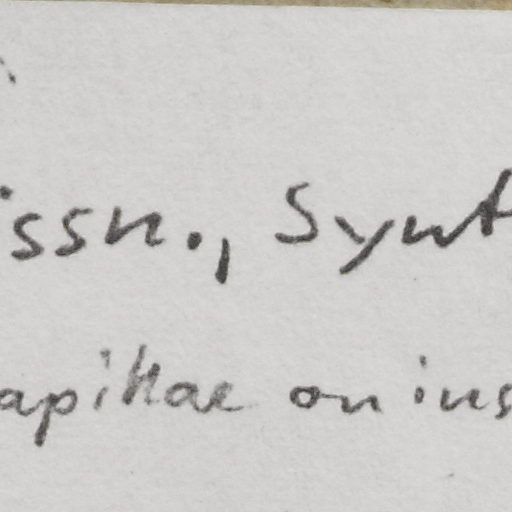 issn., Synt
apillae on ins